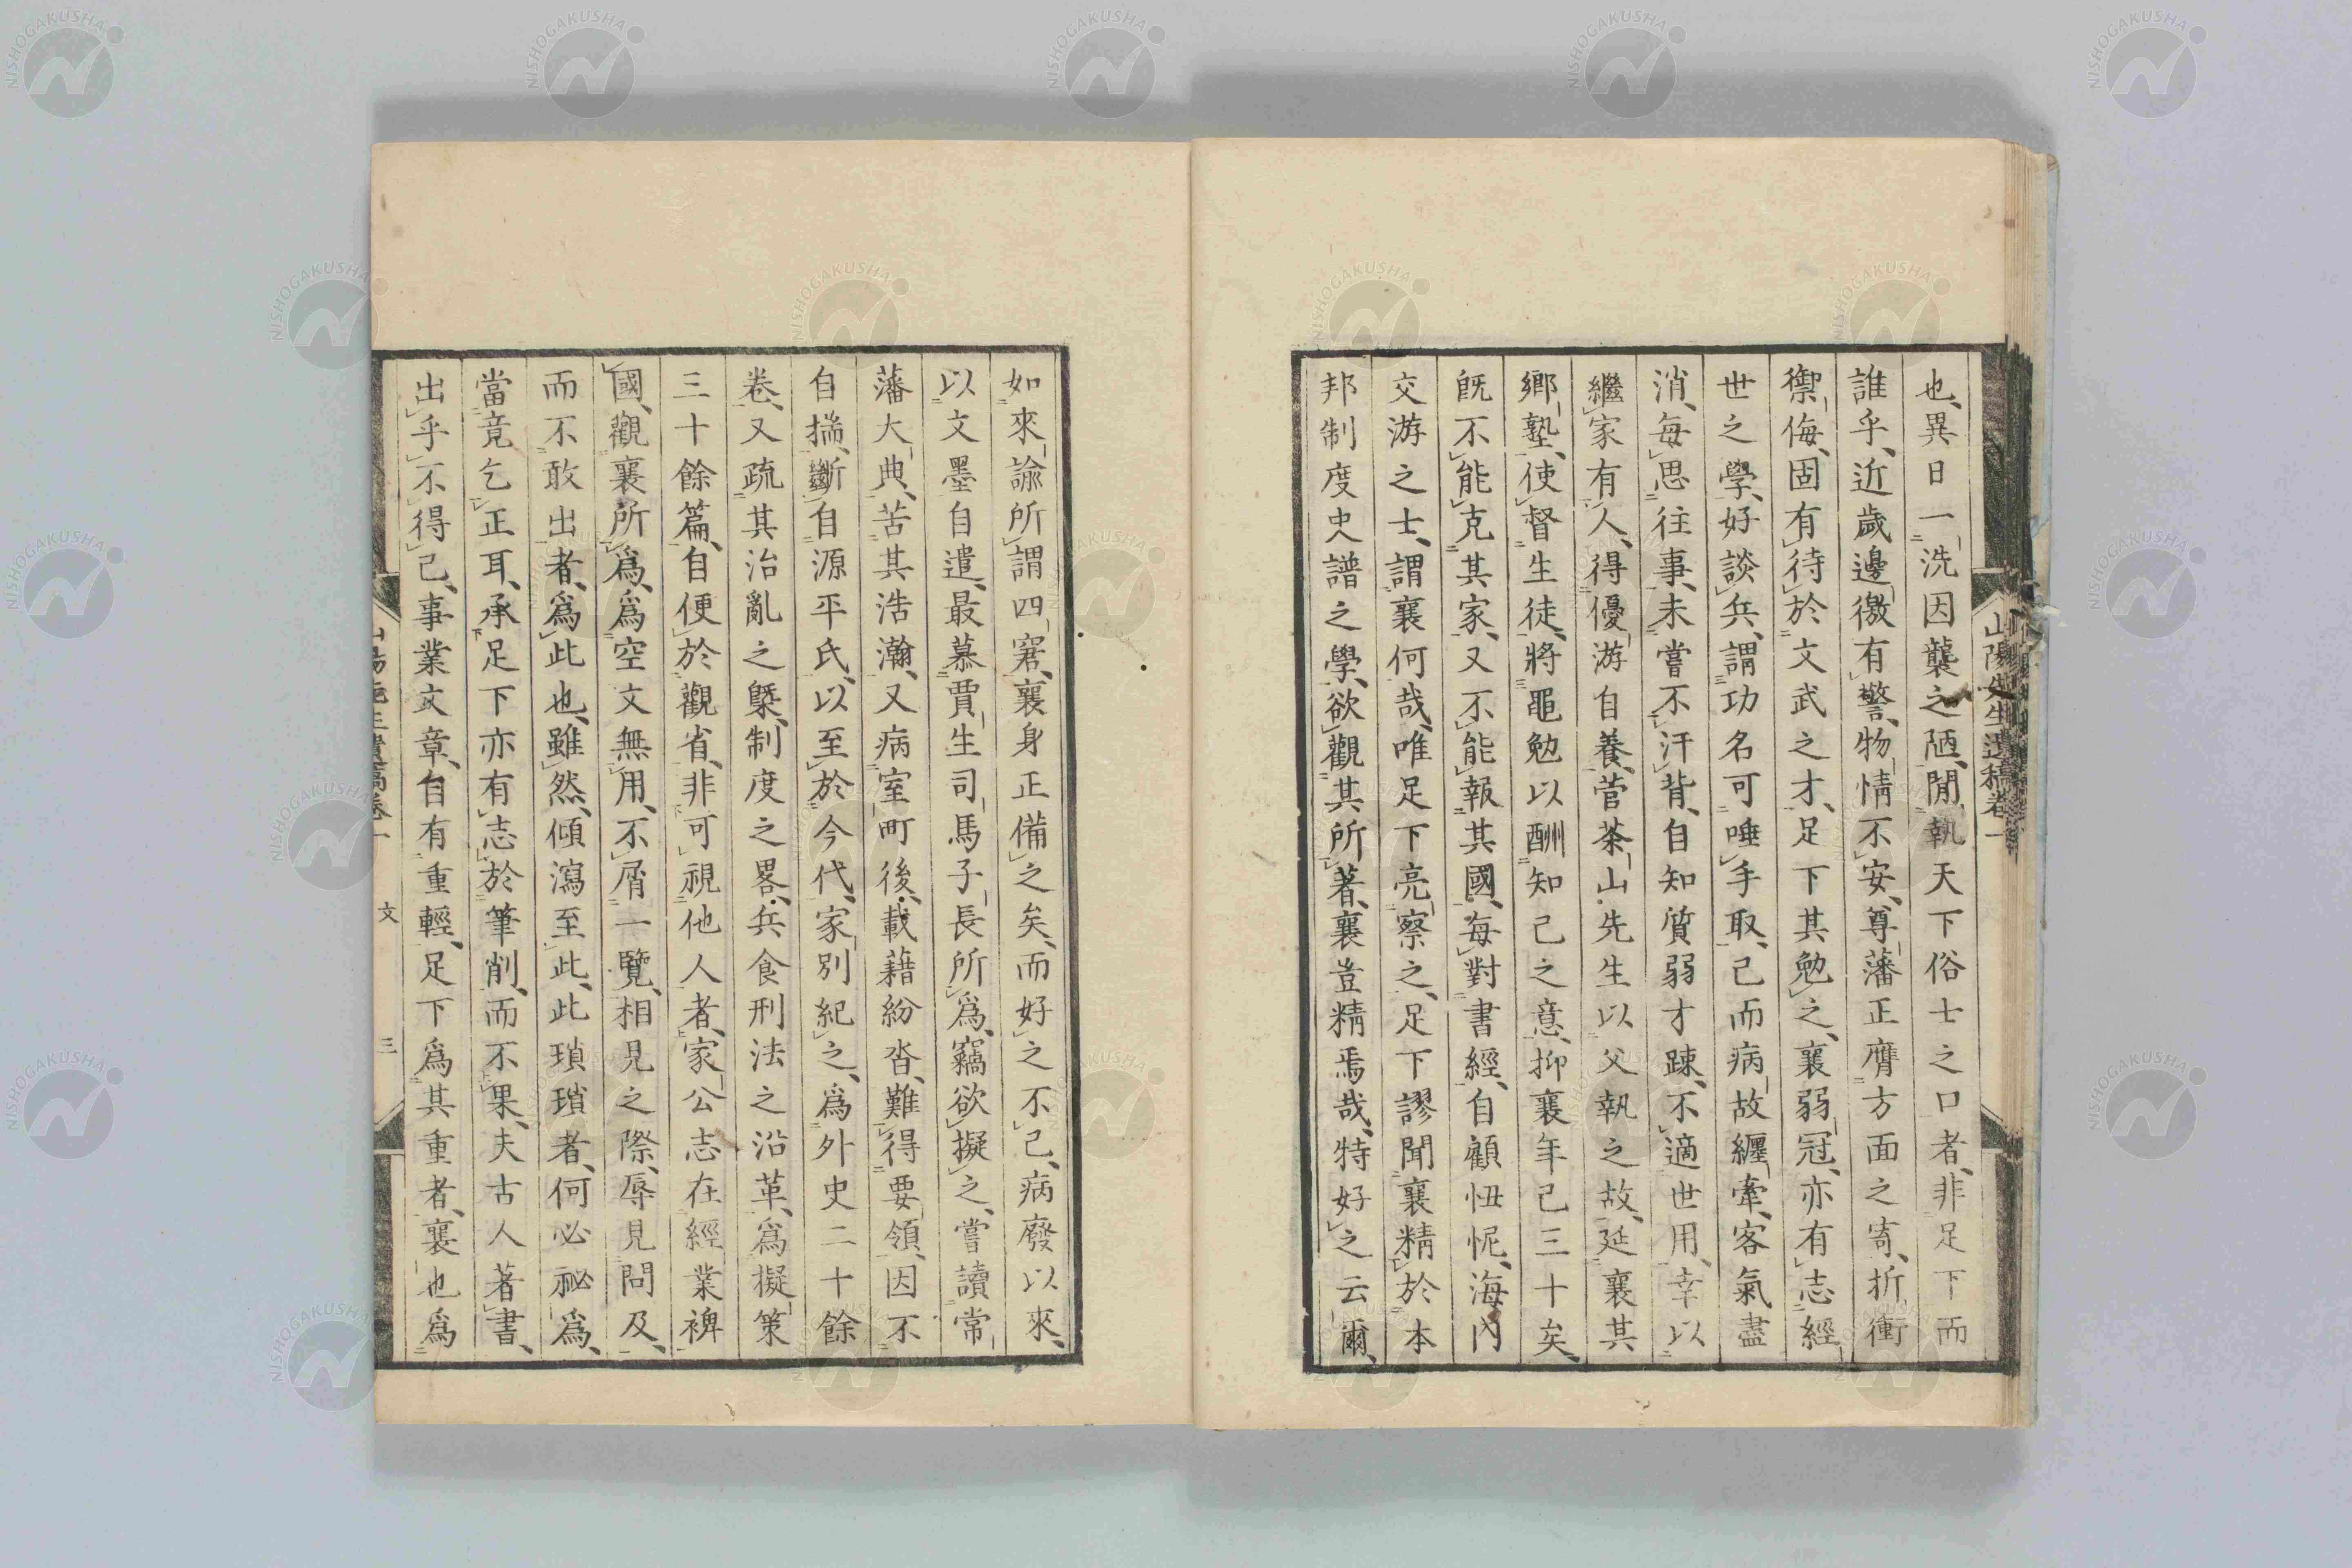 山陽先生遺稿卷一
也、異日一洗因襲之陋、閒執天下俗士之口者、非足下而
誰乎、近歲邊徼有警、物情不安、尊藩正膺方面之寄、折衝
禦侮、固有待於文武之才、足下其勉之、襄弱冠、亦有志經
世之學、好談兵、謂功名可唾手取、已而病故纏牽、客氣盡
消、每思往事、未嘗不汗背、自知質弱才踈、不適世用、幸以
繼家有人、得優游自養、菅茶山先生以父執之故、延襄其
鄉塾、使督生徒、將黽勉以酬知己之意、抑襄年已三十矣、
既不能克其家、又不能報其國、每對書經、自顧忸怩、海內
交游之士、謂襄何哉、唯足下亮察之、足下謬聞襄精於本
邦制度史譜之學、欲觀其所著、襄豈精焉哉、特好之云爾、
如來諭所謂四窘、襄身正備之矣、而好之不已、病廢以來、
以文墨自遣、最慕賈生司馬子長所爲、竊欲擬之、嘗讀常
藩大典、苦其浩瀚、又病室町後、載藉紛沓、難得要領、因不
自揣、斷自源平氏、以至於今代、家別紀之、爲外史二十餘
卷、又疏其治亂之槩、制度之畧、兵食刑法之沿革、爲擬策
三十餘篇、自便於觀省、非可視他人者、家公志在經業裨
國、觀襄所爲、爲空文無用、不屑一覽、相見之際、辱見問及、
而不敢出者、爲此也、雖然、傾瀉至此、此瑣瑣者、何必祕爲、
當竟乞正耳、承足下亦有志於筆削、而不果、夫古人著書、
出乎不得已、事業文章、自有重輕、足下爲其重者、襄也爲
山陽先生遺稿卷一 文 三